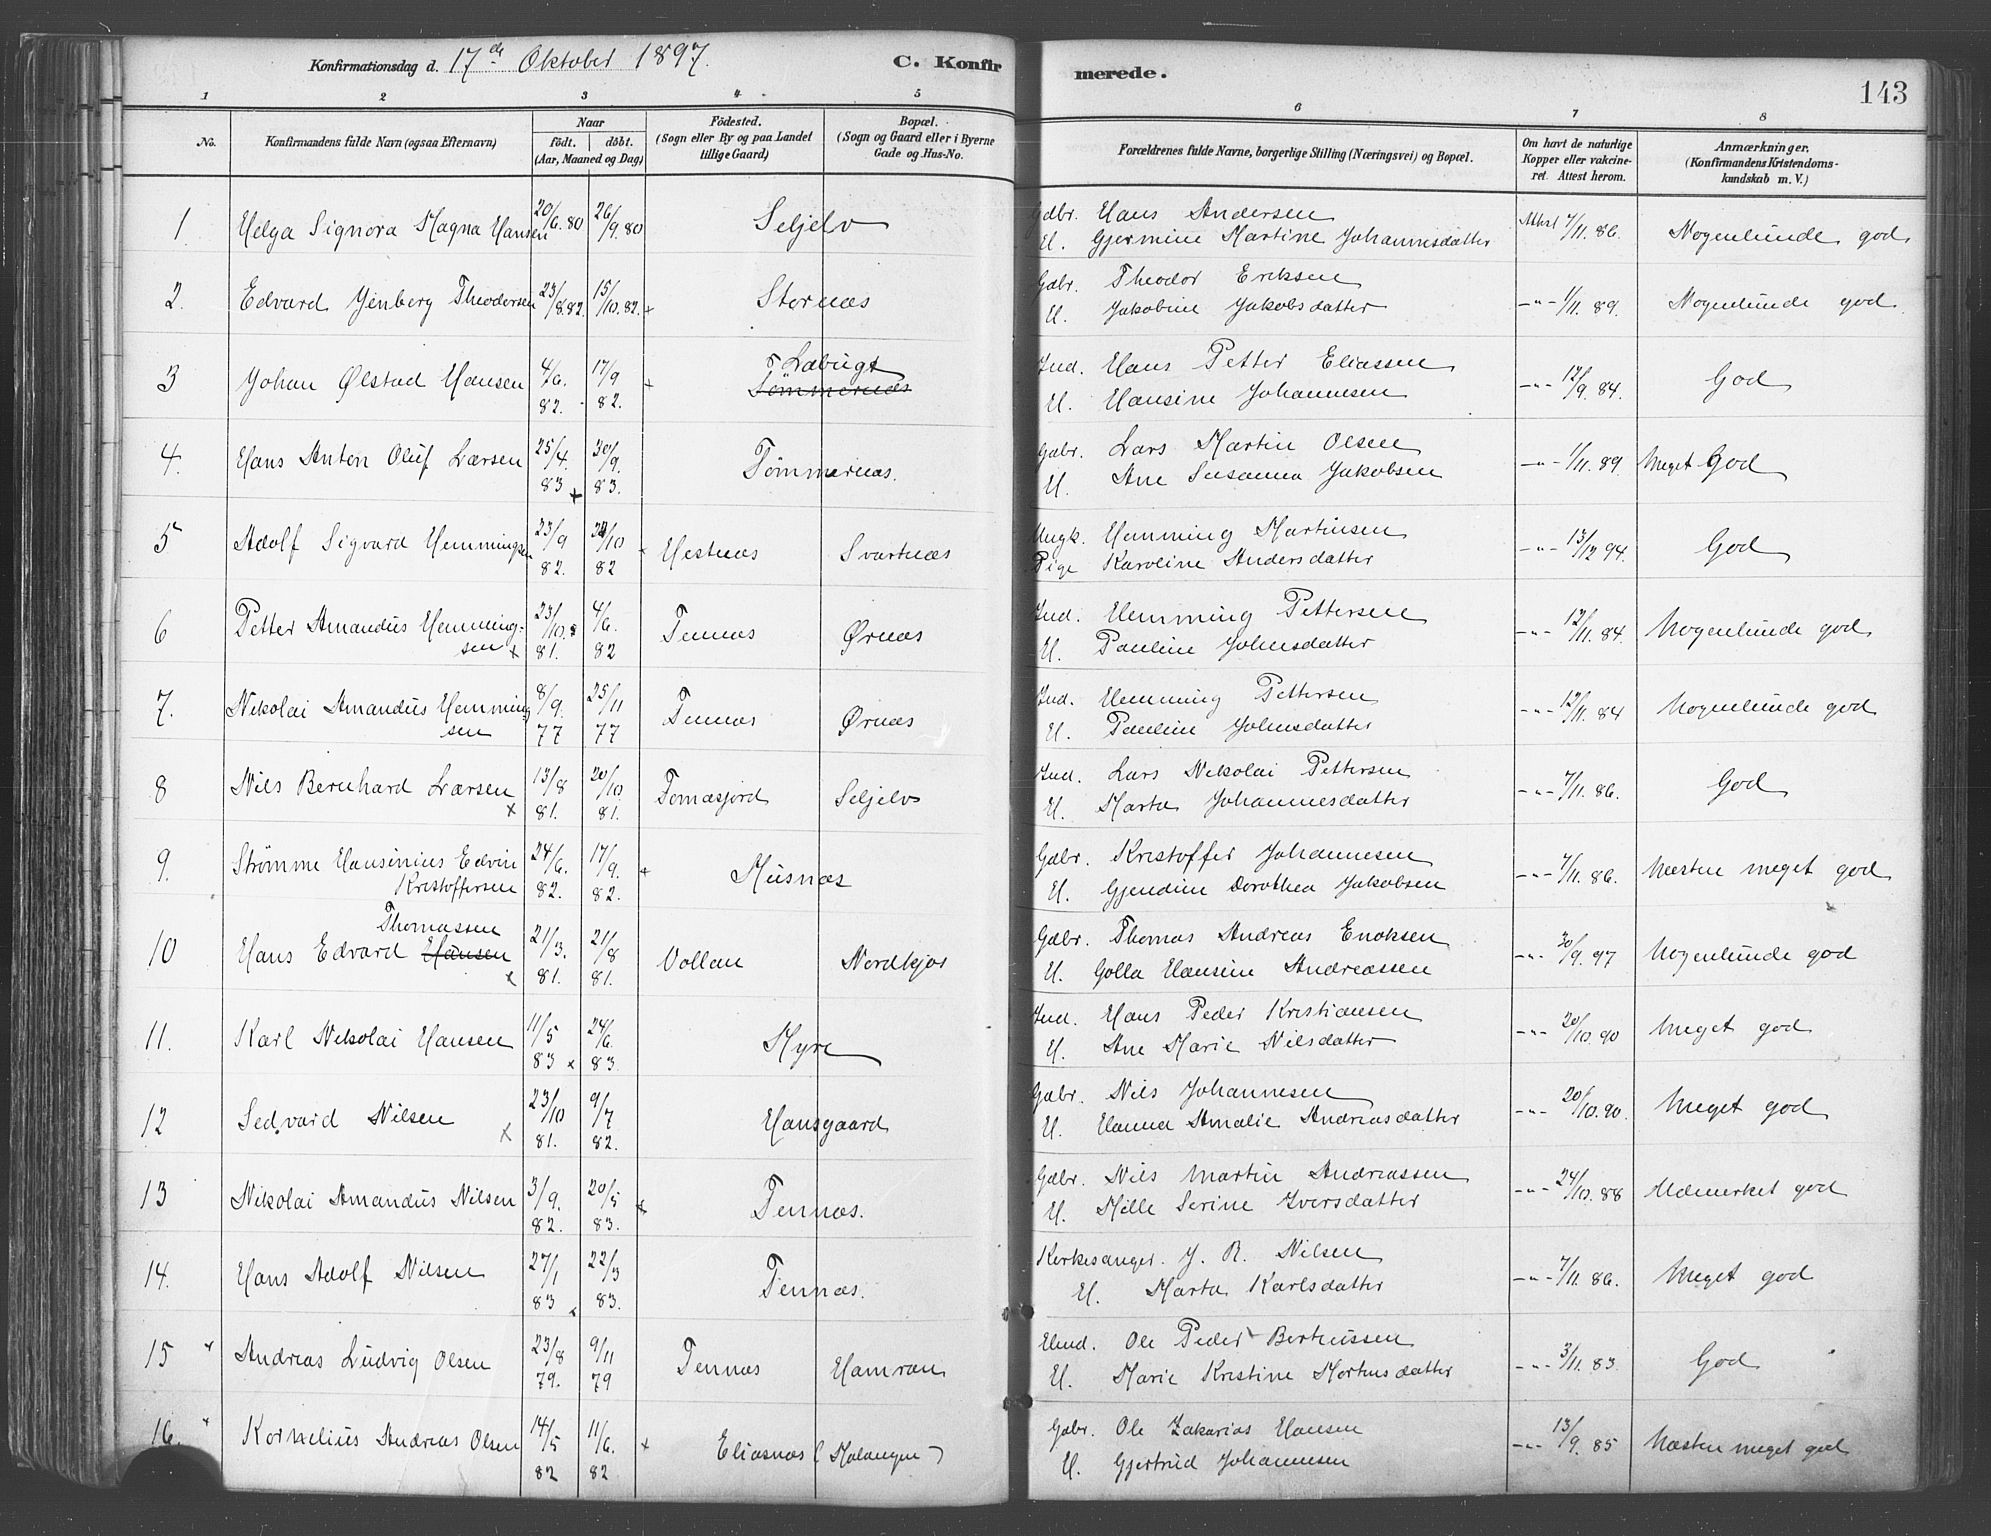 Konfirmationsdag d. 17de Oktober 1897. C. Konfirmerede. 143
1 2 3 4 5 6 7 8
No. Konfirmandens fulde Navn (ogsaa Efternavn) Naar födt. döbt. (Aar, Maaned og Dag) Födested. (Sogn eller By og paa Landet tillige Gaard) Bopæl. (Sogn og Gaard eller i Byerne Gade og Hus-No. Forældrenes fulde Navne, borgerlige Stilling (Næringsvei) og Bopæl. Om havt de naturlige Kopper eller vakcineret. Attest herom. Anmærkninger. (Konfirmandens Kristendomskundskab m. V.)
1 Helga Signora Magna Hansen 20/6. 80 26/9. 80 Seljelv Gdbr. Hans Andersen Attest 7/11. 86. Nogenlunde god
H. Gjermine Martine Johannesdatter
2. Edvard Jenberg Theodorsen 23/8. 82. 15/10. 82. Stornæs Gdbr. Theodor Eriksen -"- 1/11. 89. Nogenlunde god
H. Jakobine Jakobsdatter
3 Johan Ølstad Hansen 4/6. 82. 17/9 82. Ladbugt Tömmernæs Ind. Hans Petter Eliassen -"- 12/9. 84. God
H. Hansine Johannesen
4. Hans Anton Oluf Larsen 25/4. 83 30/9. 83. Tömmernæs. Gdbr. Lars Martin Olsen -"- 1/11. 89 Meget God
H. Ane Susanna Jakobsen
5 Adolf Sigvard Hemmingsen 23/9 82. /10 82 Hestnæs Svartnæs Ungk. Hemming Martinsen -"- 13/12 94. God
Pige Karoline Andersdatter
6 Petter Amandus Hemmingsen 23/10. 81. 4/6. 82 Tennæs Ørnæs Ind. Hemming Pettersen -"- 12/11. 84. Nogenlunde god
H. Pauline Johnsdatter
7. Nikolai Amandus Hemmingsen 8/9. 77 25/11 77 Tennæs Ørnæs Ind. Hemming Pettersen -"- 12/11. 84 Nogenlunde god
H. Pauline Johnsdatter
8 Nils Bernhard Larsen 13/8 81. 20/10. 81. Tomasjord Seljelv Ind. Lars Nikolai Pettersen -"- 7/11. 86. God
H. Marta Johannesdatter
9. Strømme Hansinius Edvin Kristoffersen 24/6. 82. 17/9. 82. Husnæs Gdbr. Kristoffer Johannesen -"- 7/11. 86. Næsten meget god
H. Gjendine Dorothea Jakobsen
10 Hans Edvard Hansen Thomassen 21/3. 81. 21/8 81. Vollan Nordkjos Gdbr. Thomas Andreas Enoksen -"- 30/9. 97 Nogenlunde god
H. Golla Hansine Andreassen
11. Karl Nikolai Hansen 11/5 83 24/6. 83. Myre Ind. Hans Peder Kristiansen -"- 20/10. 90 Meget god
H. Ane Marie Nilsdatter
12 Sedvard Nilsen 23/10 81. 9/7 82. Hansgaard Gdbr. Nils Johannesen -"- 20/10. 90. Meget god
H. Hanna Amalie Andreasdatter
13 Nikolai Amandus Nilsen 3/9. 82. 20/5 83. Tennæs. Gdbr. Nils Martin Andreassen -"- 24/10. 88 Udmerket god
H. Mille Serine Iversdatter
14. Hans Adolf Nilsen 27/1 83 22/3 83. Tennæs. Kirkesanger. J. R. Nilsen -"- 7/11. 86. Meget god
H. Marta Karlsdatter
15 Andreas Ludvig Olsen 23/8 79. 9/11 79 Tennæs Hamran Ind. Ole Peder Berteussen -"- 3/11. 83. God
H. Marie Kristine Mortensdatter
16. Kornelius Andreas Olsen 14/5 82 11/6. 82 Eliasnæs (Malangen) Gdbr. Ole Zakarias Hansen -"- 13/9. 85 Næsten meget god
H. Gjertrud Johannesen